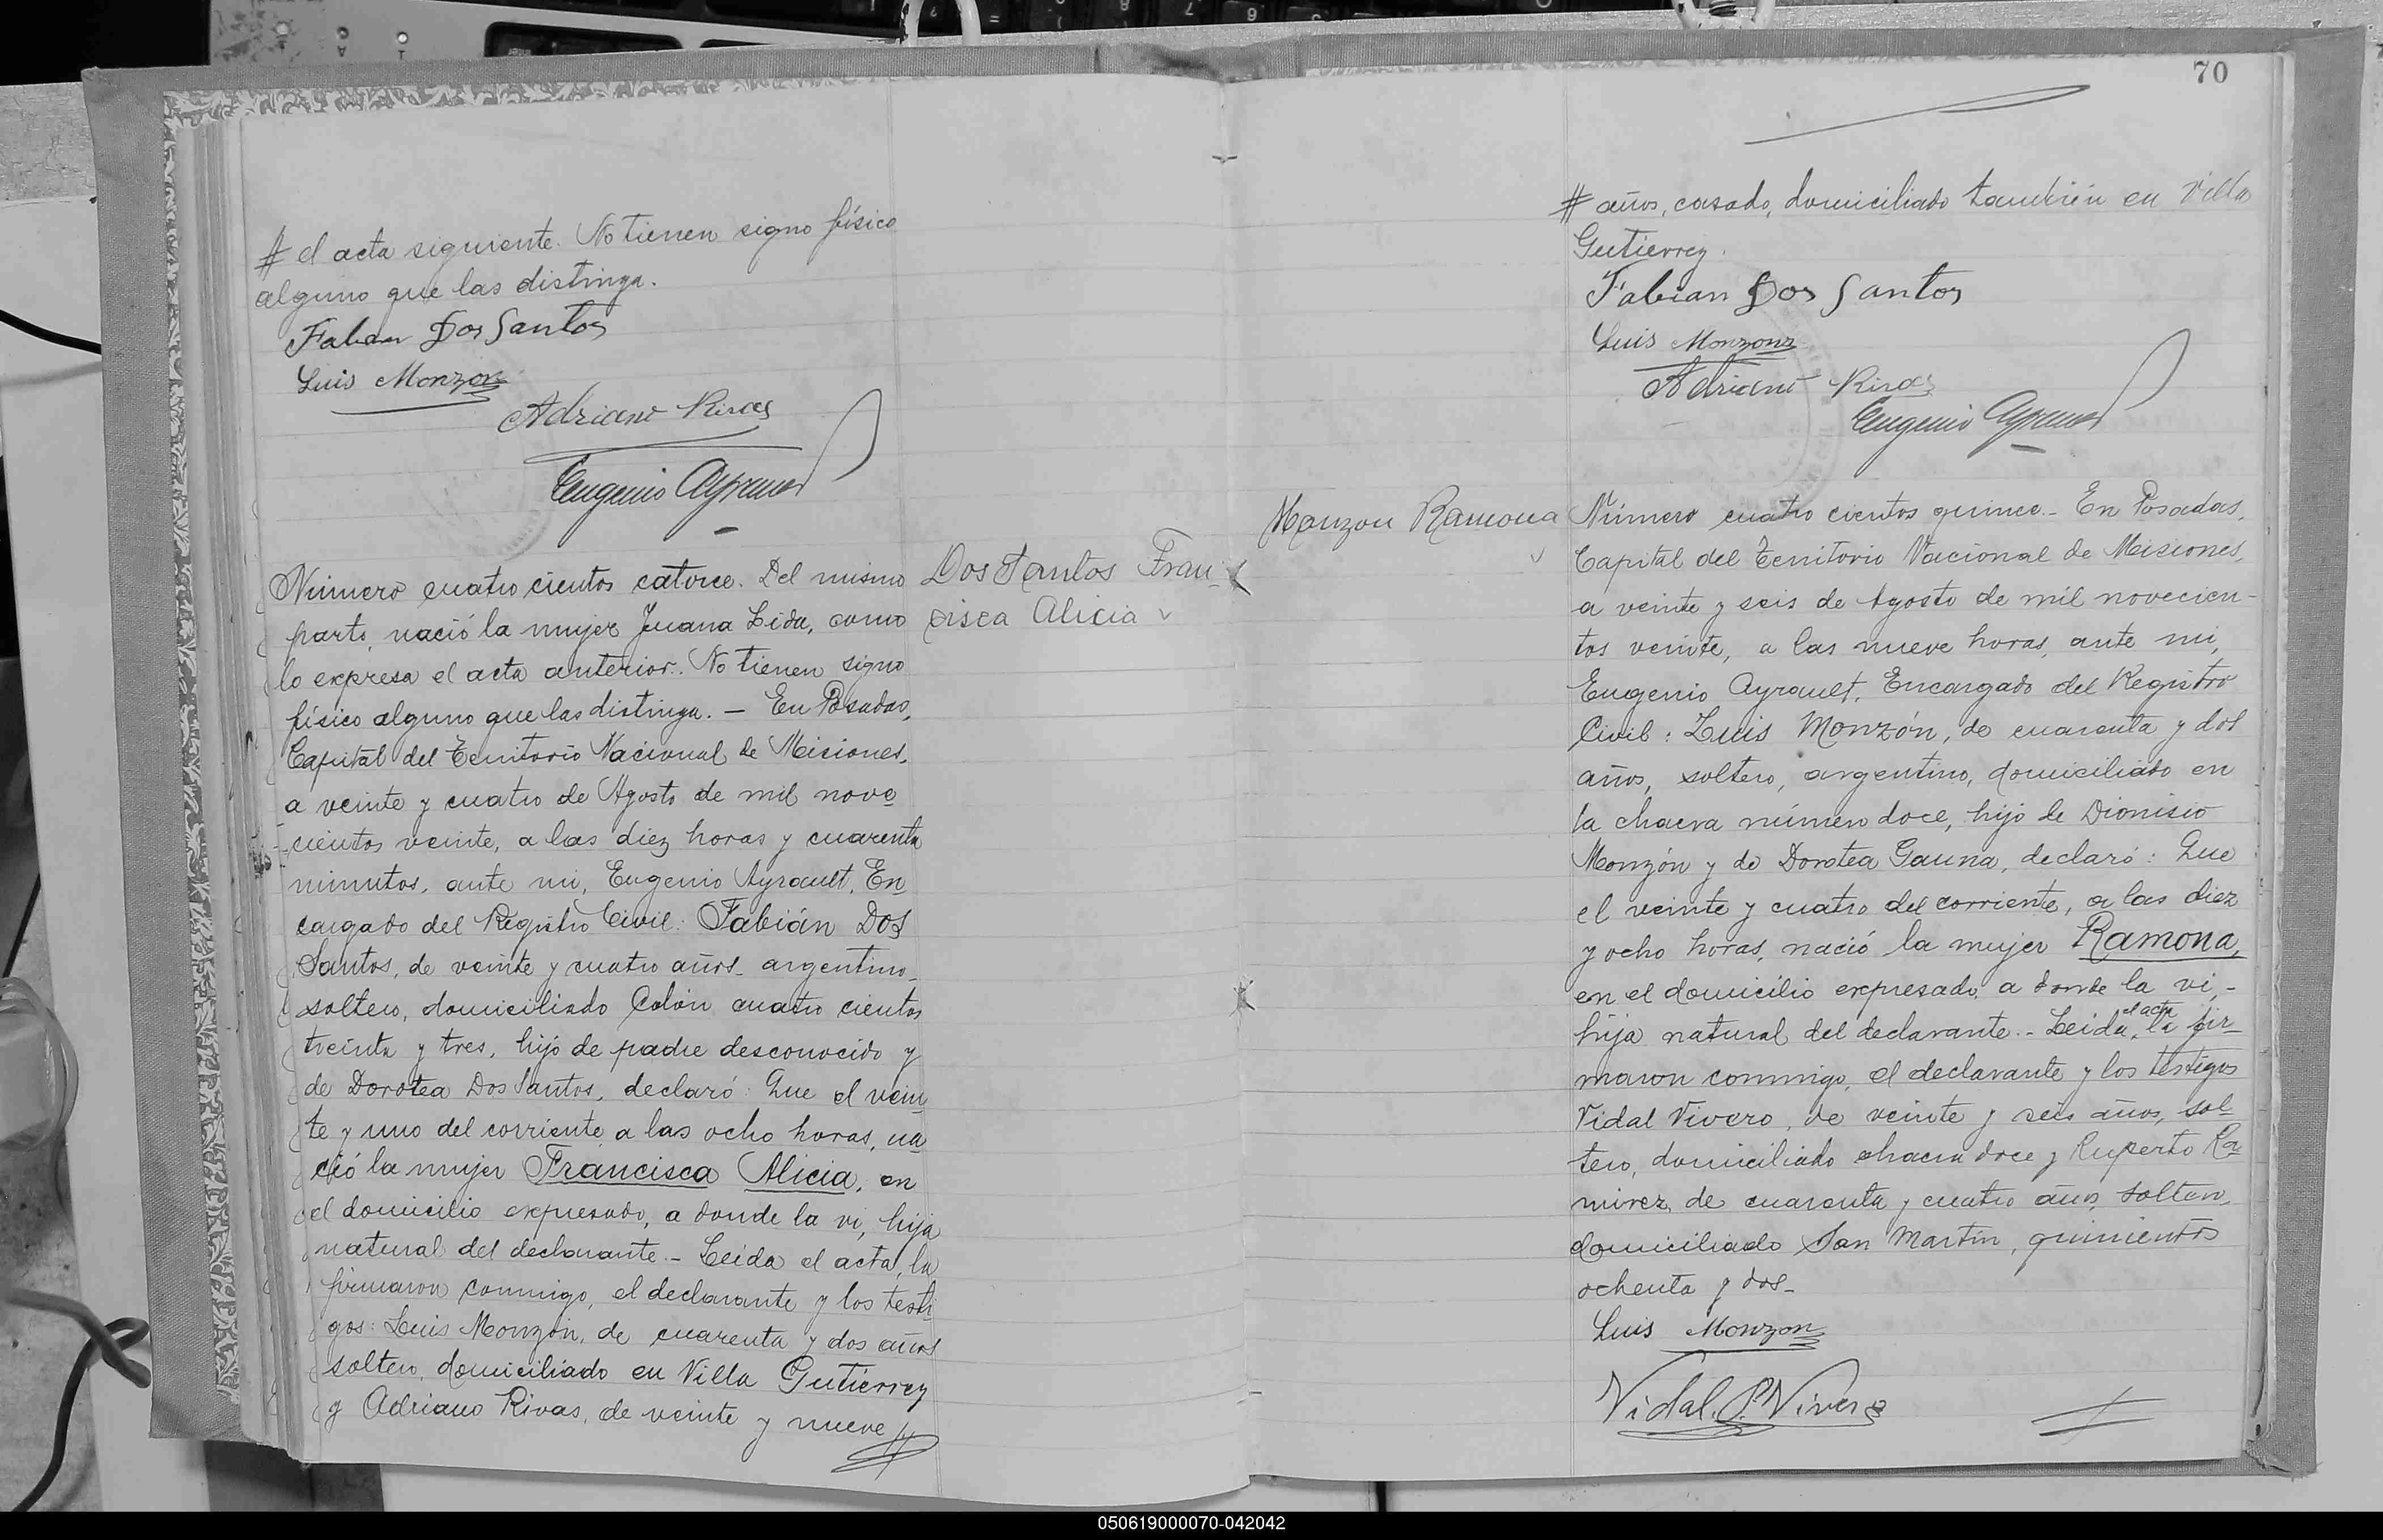 # el acta siguiente. No tienen signo físico
alguno que las distinga.
Fabian Dos Santos
Luis Monzon
Adriano Rivas
Eugenio Ayrault
Número cuatro cientos catorce. Del mismo
parto, nació la mujer Juana Lida, como
lo expresa el acta anterior. No tienen signo
físico alguno que las distinga. — En Posadas,
Capital del Territorio Nacional de Misiones,
a veinte y cuatro de Agosto de mil nove
cientos veinte, a las diez horas y cuarenta
minutos, ante mi, Eugenio Ayrault, En
cargado del Registro Civil: Fabián Dos
Santos, de veinte y cuatro años, argentino,
soltero, domiciliado Colón cuatro cientos
treinta y tres, hijo de padre desconocido y
de Dorotea Dos Santos, declaró: Que el vein
te y uno del corriente a las ocho horas, na
ció la mujer Francisca Alicia, en
el domicilio expresado, a donde la vi, hija
natural del declarante. - Leida el acta, la
firmaron conmigo, el declarante y los testi
gos: Luis Monzón, de cuarenta y dos años
soltero, domiciliado en Villa Gutierrez
y Adriano Rivas, de veinte y nueve #
Dos Santos Fran-
cisca Alicia
70
# años, casado, domiciliado también en Villa
Gutierrez.
Fabian Dos Santos
Luis Monzon
Adriano Rivas
Eugenio Ayrault
Monzon Ramona
Número cuatro cientos quince. - En Posadas,
Capital del Territorio Nacional de Misiones,
a veinte y seis de Agosto de mil novecien-
tos veinte, a las nueve horas, ante mi,
Eugenio Ayrault, Encargado del Registro
Civil: Luis Monzón, de cuarenta y dos
años, soltero, argentino, domiciliado en
la chacra número doce, hijo de Dionisio
Monzón y de Dorotea Gauna, declaró: Que
el veinte y cuatro del corriente, a las diez
y ocho horas, nació la mujer Ramona,
en el domicilio expresado, a donde la vi, -
hija natural del declarante. - Leida el acta, la fir-
maron conmigo, el declarante y los testigos
Vidal Vivero, de veinte y seis años, sol-
tero, domiciliado chacra doce y Ruperto Ra-
mirez, de cuarenta y cuatro años, soltero,
domiciliado San Martín, quinientos
ochenta y dos. -
Luis Monzon
Vidal. P. Vivero
050619000070-042042